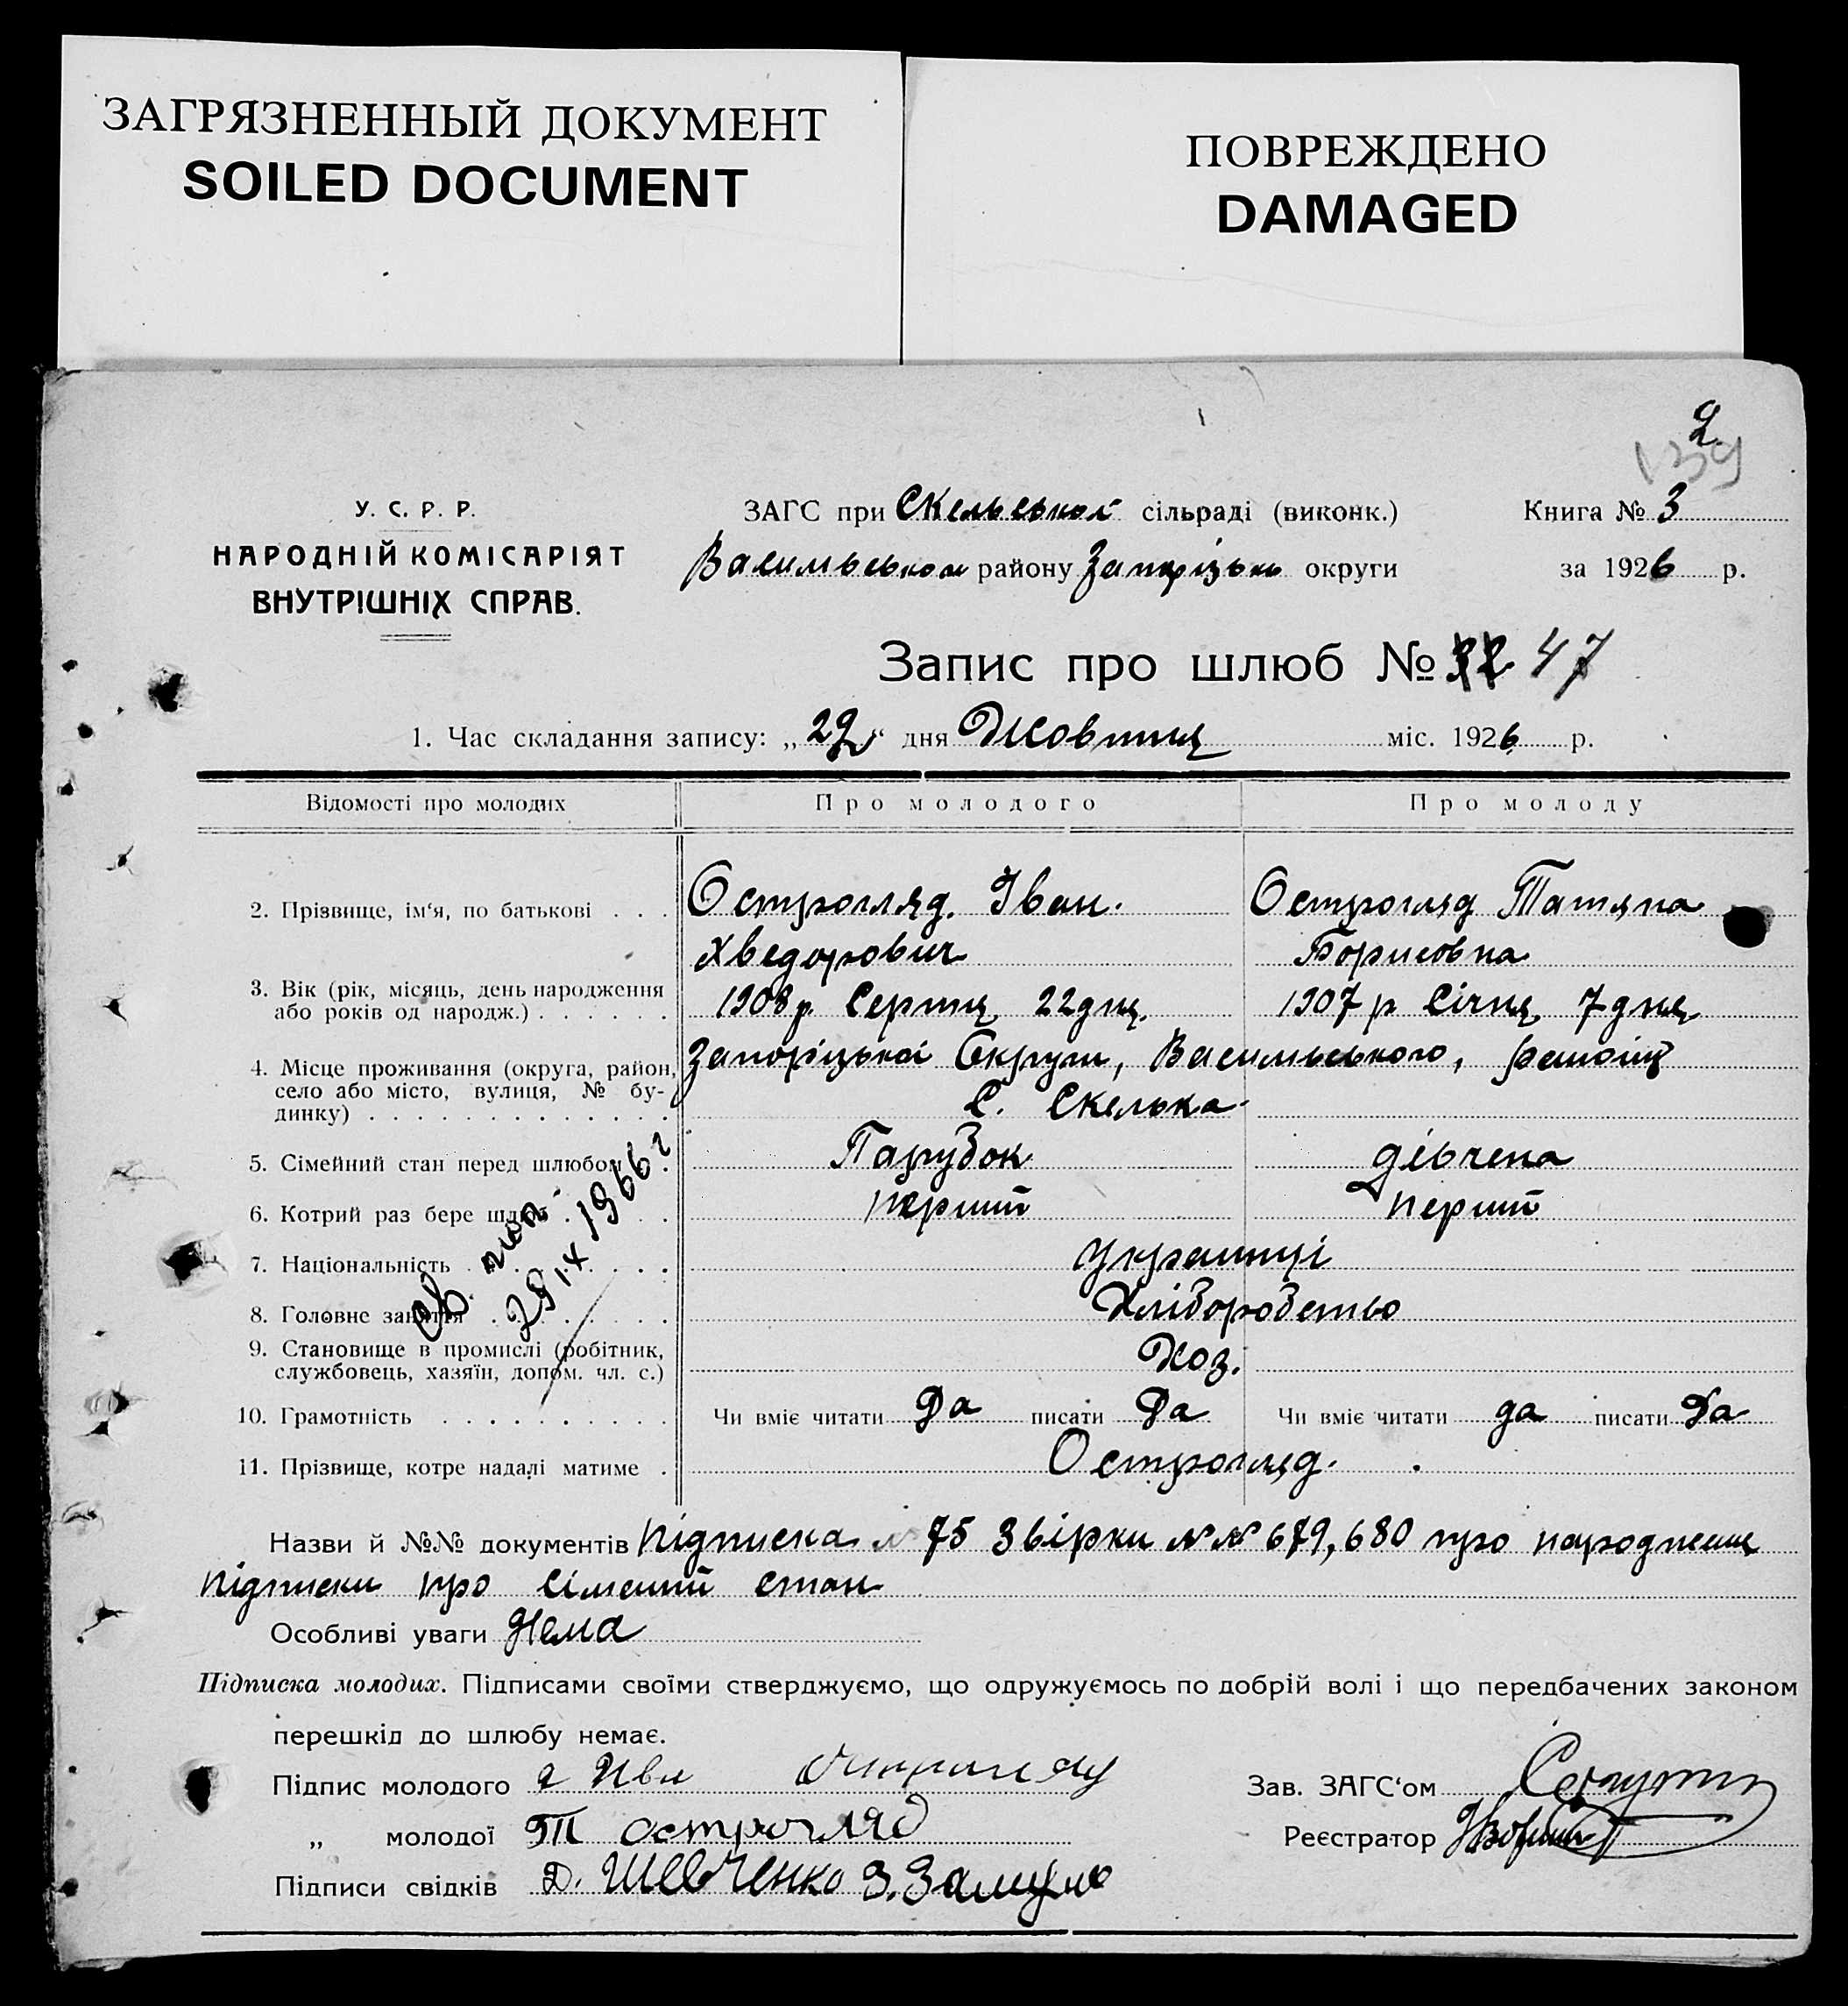 ЗАГРЯЗНЕННЫЙ ДОКУМЕНТ
SOILED DOCUMENT
ПОВРЕЖДЕНО
DAMAGED
2
139
У. С. Р. Р.
НАРОДНІЙ КОМІСАРІЯТ
ВНУТРІШНІХ СПРАВ.
ЗАГС при Скельській сільраді (виконк.)
Васильвського району Запорізької округи
Книга № 3
за 1926 р.
Запис про шлюб № 32 47
1. Час складання запису: „22“ дня Жовтня міс. 1926 р.
Відомості про молодих Про молодого Про молоду
2. Прізвище, ім‘я, по батькові . . . Острогляд. Іван. Острогляд Татяна
Хведорович Борисовна
3. Вік (рік, місяць, день народження
або років од народж.) . . . . . . 1908 р. Серпня 22 дня. 1907 р Січня 7 дня
4. Місце проживання (округа, район,
село або місто, вулиця, № бу-
динку) . . . . . . . . . . . . .
Запоріцької Округи, Васильвського, району
С. Скелька
5. Сімейний стан перед шлюбом . . Парубок дівчена
6. Котрий раз бере шлюб . . . . . перший перший
7. Національність . . . . . . . . українці
8. Головне заняття . . . . . . . . Хліборобство
9. Становище в промислі (робітник,
службовець, хазяїн, допом. чл. с.) Хоз.
10. Грамотність . . . . . . . . . . Чи вміє читати Да писати Да Чи вміє читати да писати Да
11. Прізвище, котре надалі матиме . Острогляд.
Св. пов.
29 IX 1966 г
Назви й №№ документів Підписка № 75 Звірки №№ 679, 680 про народження
підписки про сімейний стан
Особливі уваги Нема
Підписка молодих. Підписами своїми стверджуємо, що одружуємось по добрій волі і що передбачених законом
перешкід до шлюбу немає.
Підпис молодого Ивл
„ молодої Т острогляд
Підписи свідків Д. Шевченко З. Замула
Зав. ЗАГС‘ом
Реєстратор